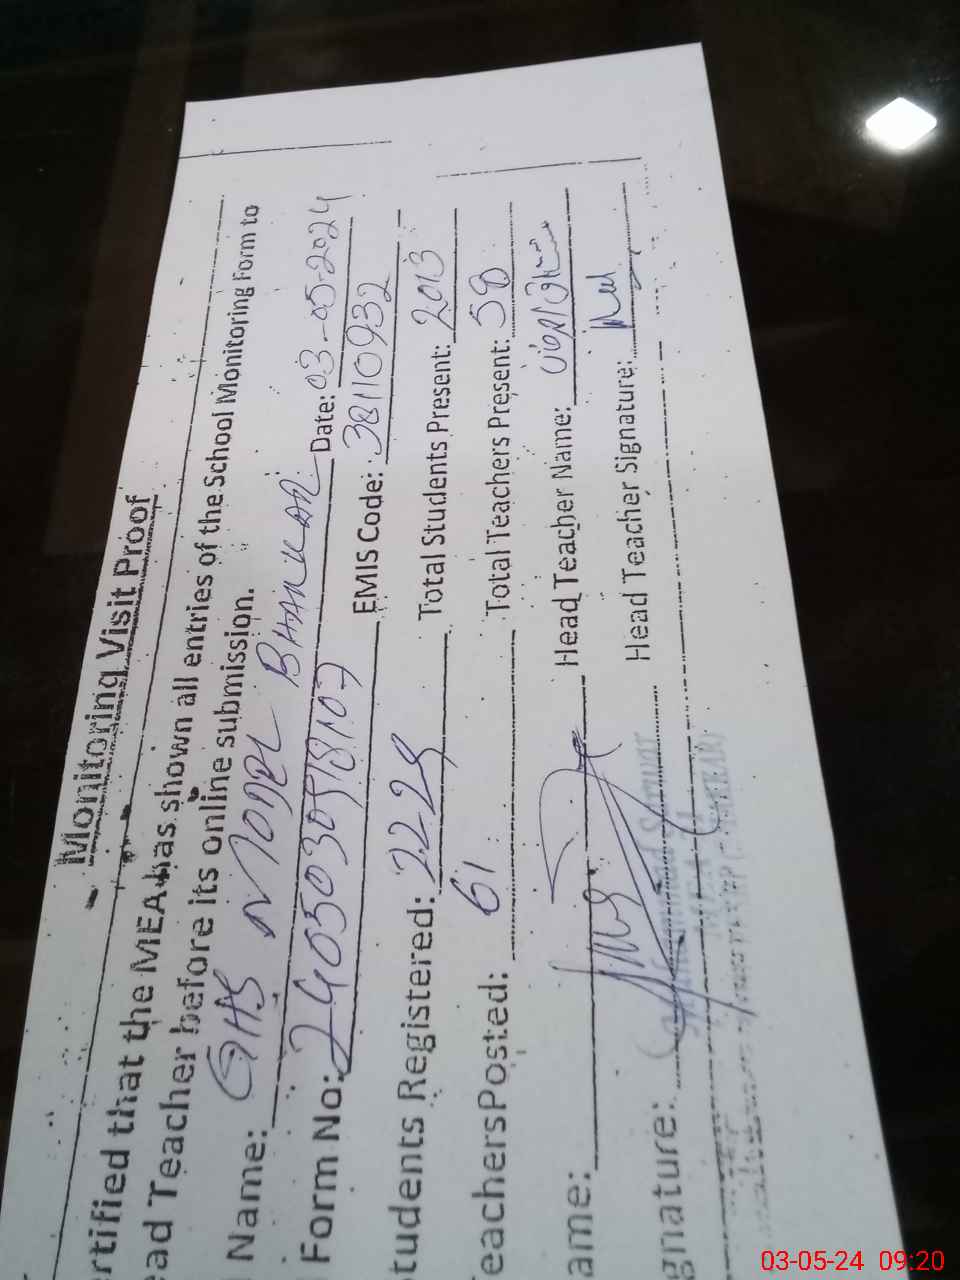 Monitoring Visit Proof
ertified that the MEA has shown all entries of the School Monitoring Form to
ead Teacher before its online submission.
Name: GHS MODEL BHAKKAR Date: 03-05-2024
Form No: EMIS Code: 38110932
tudents Registered: 2229 Total Students Present: 2013
Teachers Posted: 61 Total Teachers Present: 58
ame: Head Teacher Name:
gnature: Head Teacher Signature:
03-05-24 09:20